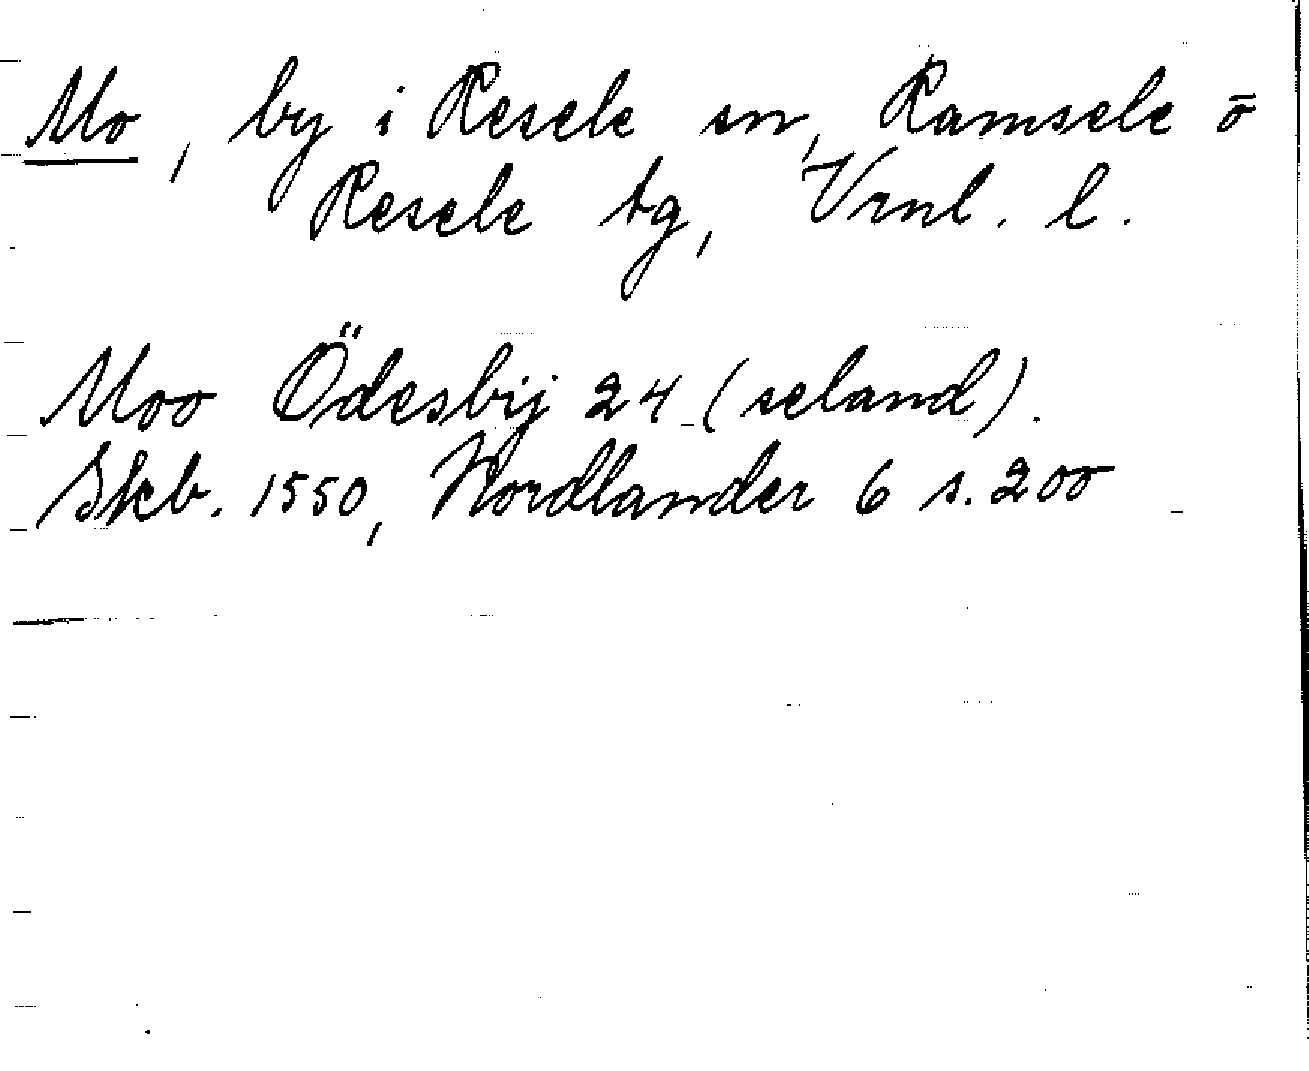 Mo, by i Resele sn, Ramsele o
Resele tg, Vrnl. l.
Moo Ödesbij 24 (seland).
Skb. 1550, Nordlander 6 s. 200